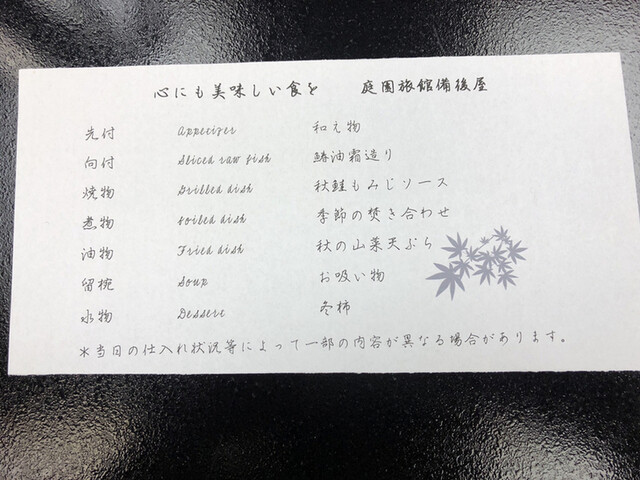 心にも美味しい食を 庭園旅館備後屋
先付 Appetizer 和え物
向付 Sliced raw fish 鰆油霜造り
焼物 Grilled dish 秋鮭もみじソース
煮物 Foiled dish 季節の焚き合わせ
油物 Fried dish 秋の山菜天ぷら
留椀 Soup お吸い物
水物 Dessert 冬柿
*当日の仕入れ状況等によって一部の内容が異なる場合があります。